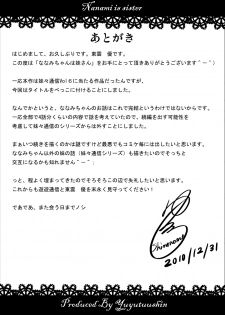 Nanami is sister
あとがき
はじめまして、お久しぶりです、東雲　優です。
この度は「ななみちゃんは妹さん」をお手にとって頂きありがとうございます＾－＾
一応本作は妹々通信Vol6に当たる作品だったんですが、
今回はタイトルをべっこに付けることにしました。
なんでかというと、ななみちゃんのお話はこれで完結というわけではないからです。
一応全部で4話分くらいの内容で話を考えていたので、続編を出す可能性を
考慮して妹々通信のシリーズからは外すことにしました。
まぁいつ続きを描くのかは謎ですけど最悪でもコミケ毎には出したいと思います。
ななみちゃん以外の妹の話（妹々通信シリーズ）も描きたいのでそっちと
交互になるかも知れません＾－＾；
っと、程よく埋まってきたのでそろそろこの辺で失礼したいと思います。
これからも遊遊通信と東雲　優を末永く見守ってください！
であであ、また会う日までノシ
Shinonome
2010/12/31
Produced By Yuyutsuushin